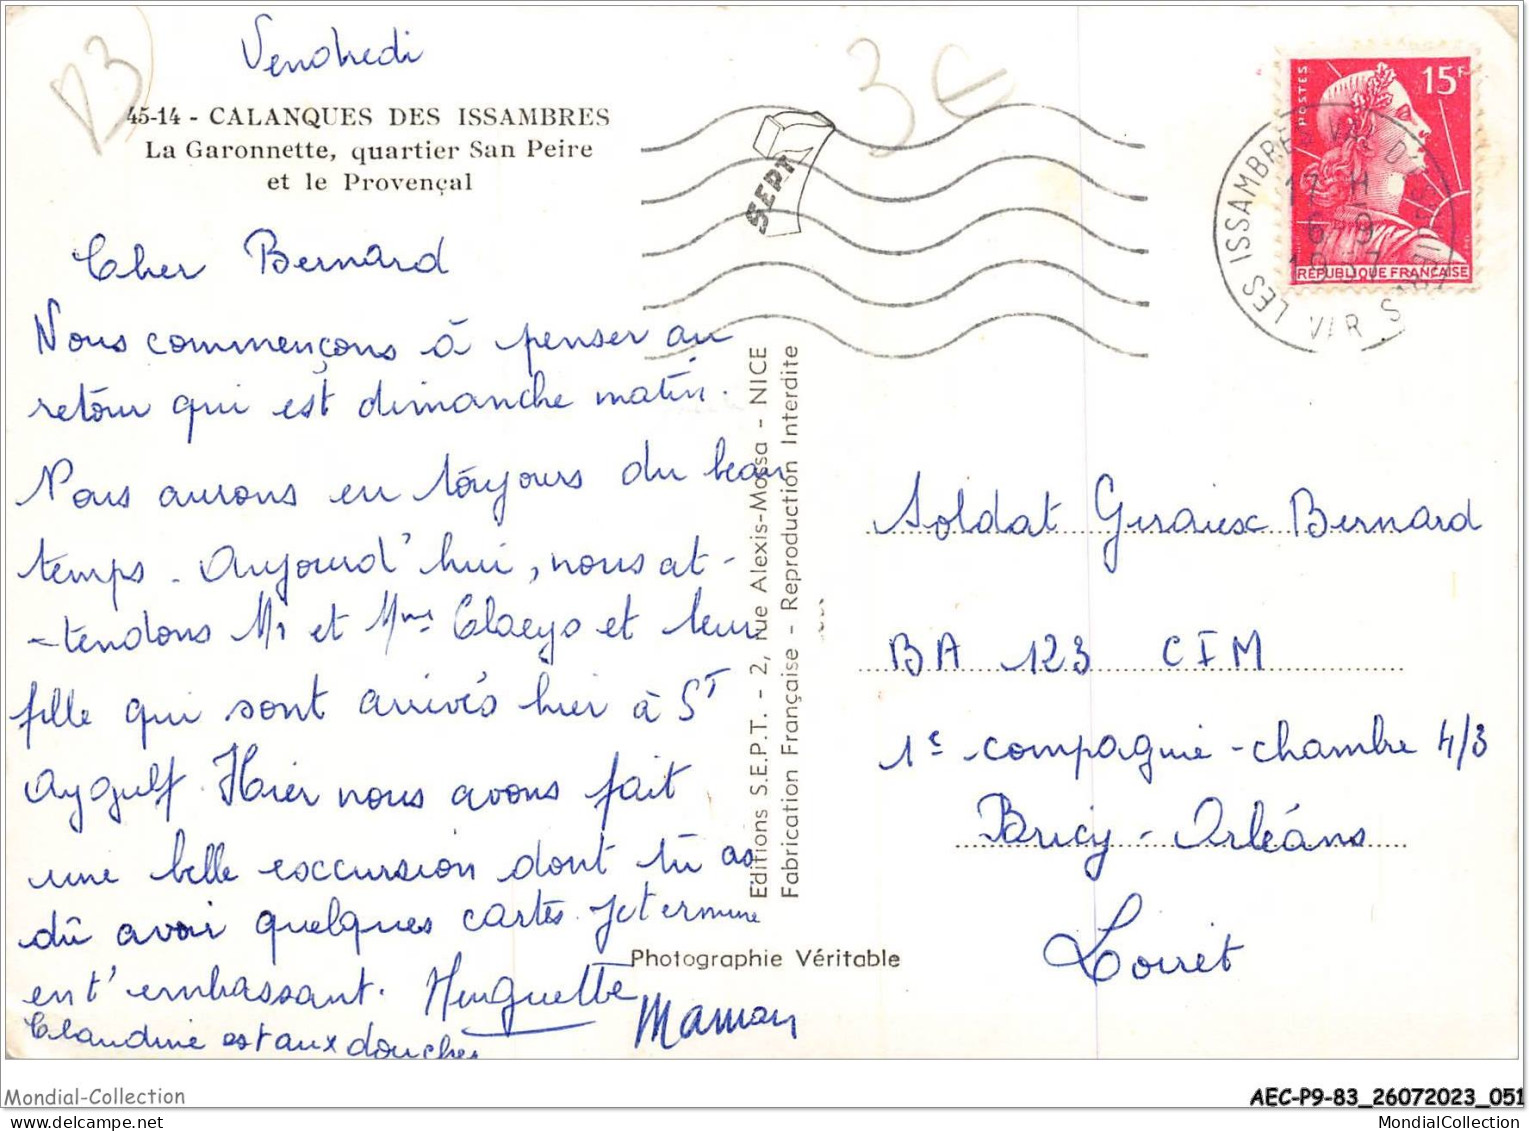 Vendredi
B3
3€
45-14 - CALANQUES DES ISSAMBRES
La Garonnette, quartier San Peire
et le Provençal
SEPT
POSTES
15F
RÉPUBLIQUE FRANÇAISE
LES ISSAMBRES VAR
17 H
6-9
1957
Cher Bernard
Nous commençons à penser au
retour qui est dimanche matin.
Nous aurons eu toujours du beau
temps. Aujourd'hui, nous at-
-tendons Mr et Mme Claeys et leur
fille qui sont arrivés hier à St
Aygulf. Hier nous avons fait
une belle excursion dont tu as
dû avoir quelques cartes. Je termine
en t'embrassant. Huguette
Claudine est aux douches
Maman
Editions S.E.P.T. - 2, rue Alexis-Mossa - NICE
Fabrication Française - Reproduction Interdite
Photographie Véritable
Soldat Giraux Bernard
BA 123 CIM
1e compagnie - chambre 4/3
Bricy - Orléans
Loiret
Mondial-Collection
AEC-P9-83_26072023_051
MondialCollection